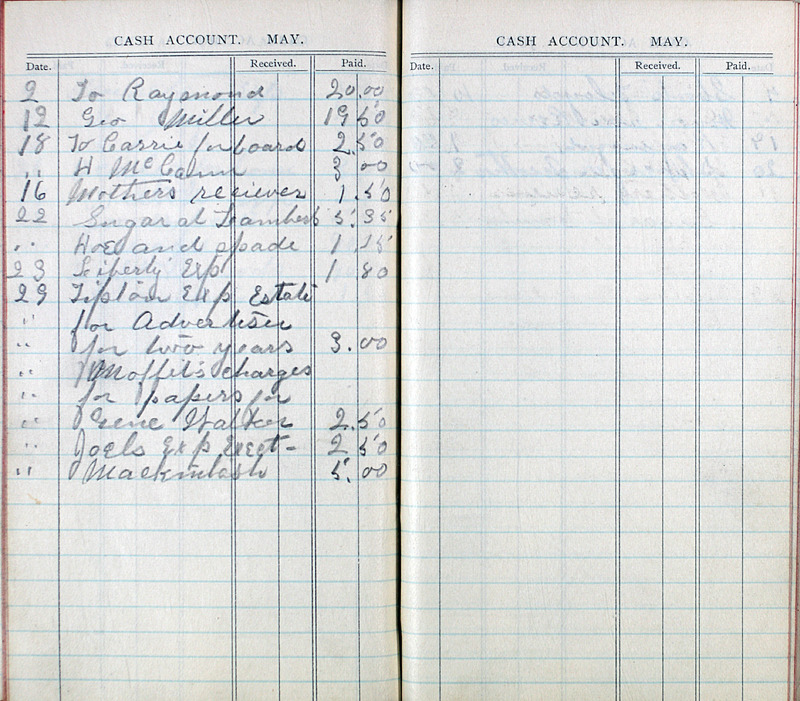 CASH ACCOUNT. MAY.
Date. Received. Paid.
2 To Raymond 20.00
12 Geo Miller 19 50
18 To Carrie for board 2.50
" H McCann 3 00
16 Mothers reciever 1.50
22 Sugar at Lamberts 5.35
" Hoe and spade 1 15
23 Liberty Exp 1 80
29 Exp Estate
" for Advertiser
" for two years 3.00
" Moffits charges
" for papers for
" Gene Walker 2.50
" Joels Exp 2 50
" Mackintosh 5.00
CASH ACCOUNT. MAY.
Date. Received. Paid.